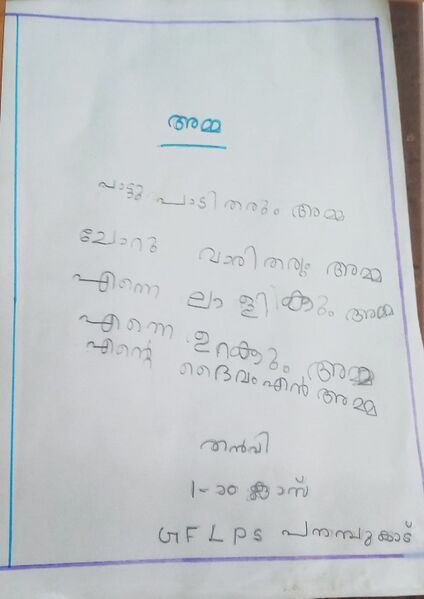 അമ്മ
പാട്ടു പാടി തരും അമ്മ
ചോറു വാരി തരും അമ്മ
എന്നെ ലാ ളി കും അമ്മ
എന്നെ ഉറകും അമ്മ
എൻ്റെ ദൈവം എൻ അമ്മ
തൻവി
1-ാം ക്ലാസ്
GFLPS പനമ്പുകാട്